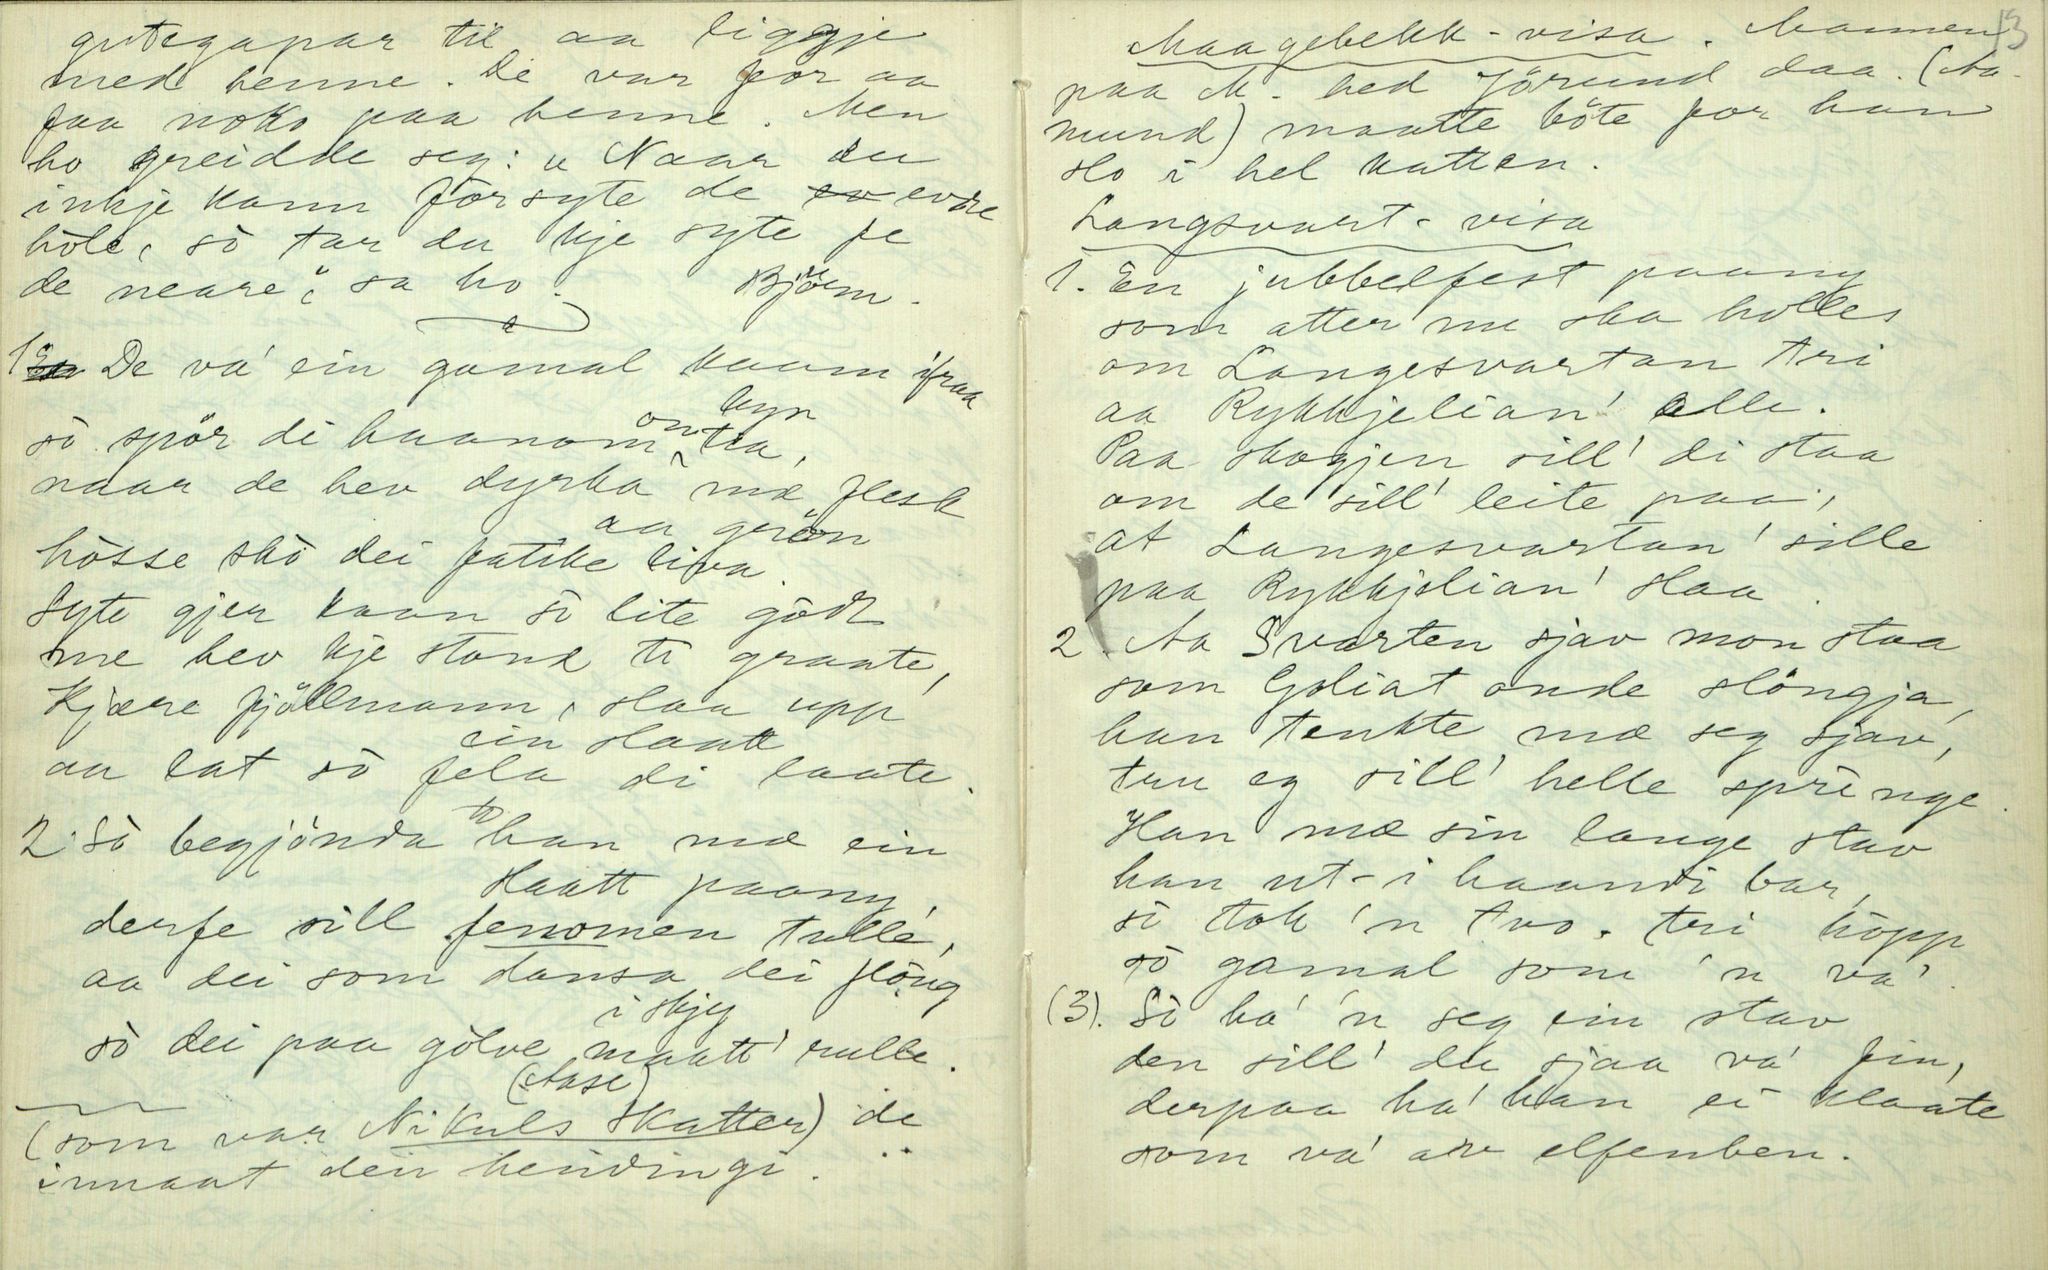 gutegapar til aa liggje
med henne. De var for aa
faa noko paa henne. Men
ho greidde seg: „Naar du
inkje kann försyte de ev evre
hòle, sò tar du kje syte fe
de neare", sa ho. Björn.
1 En De va' ein gamal kaam ifraa
byn
sò spör di haanom om tia,
naar de hev dyrka mæ flesk
aa gröön
hòsse skò dei fatike liva.
Syte gjer kaan sò lite gòdt
me hev kje stond ti graate,
Kjære fjöllmann, slaa upp
ein slaatt
aa lat sò fela di laate.
2. Sò begjönda to han mæ ein
slaatt paany,
derfe sill fenomen tulle,
aa dei som dansa dei flöug
i skjy
sò dei paa gòlve maatt' rulle.
(Aase)
(som var Nikuls Skatter) de
innaat den hendingi.
13
Maagebekk-visa. Mannen
paa M. hed Jörund daa. (Aa-
mund) maatte böte for han
slo i hel katten.
Langsvart-visa
1. En jubbelfest paany
som atter me ska holles
om Langesvartan tri
aa Rykkjelian' alle.
Paa skogjen sill' di staa
om de sill' leite paa,
at Langesvartan' sille
paa Rykkjelian' slaa.
2. Aa Svarten sjav mon staa
som Goliat onde slöngja,
han tenkte mæ seg sjav,
tru eg sill' helle springe.
Han mæ sin lange stav
han ut-i haandi bar,
sò tok 'n tvo. tri hòpp
sò gamal som 'n va'.
(3). Sò ha' 'n seg ein stav
den sill' du sjaa va' fin,
derpaa ha' han ei klaate
som va' av elfenben.